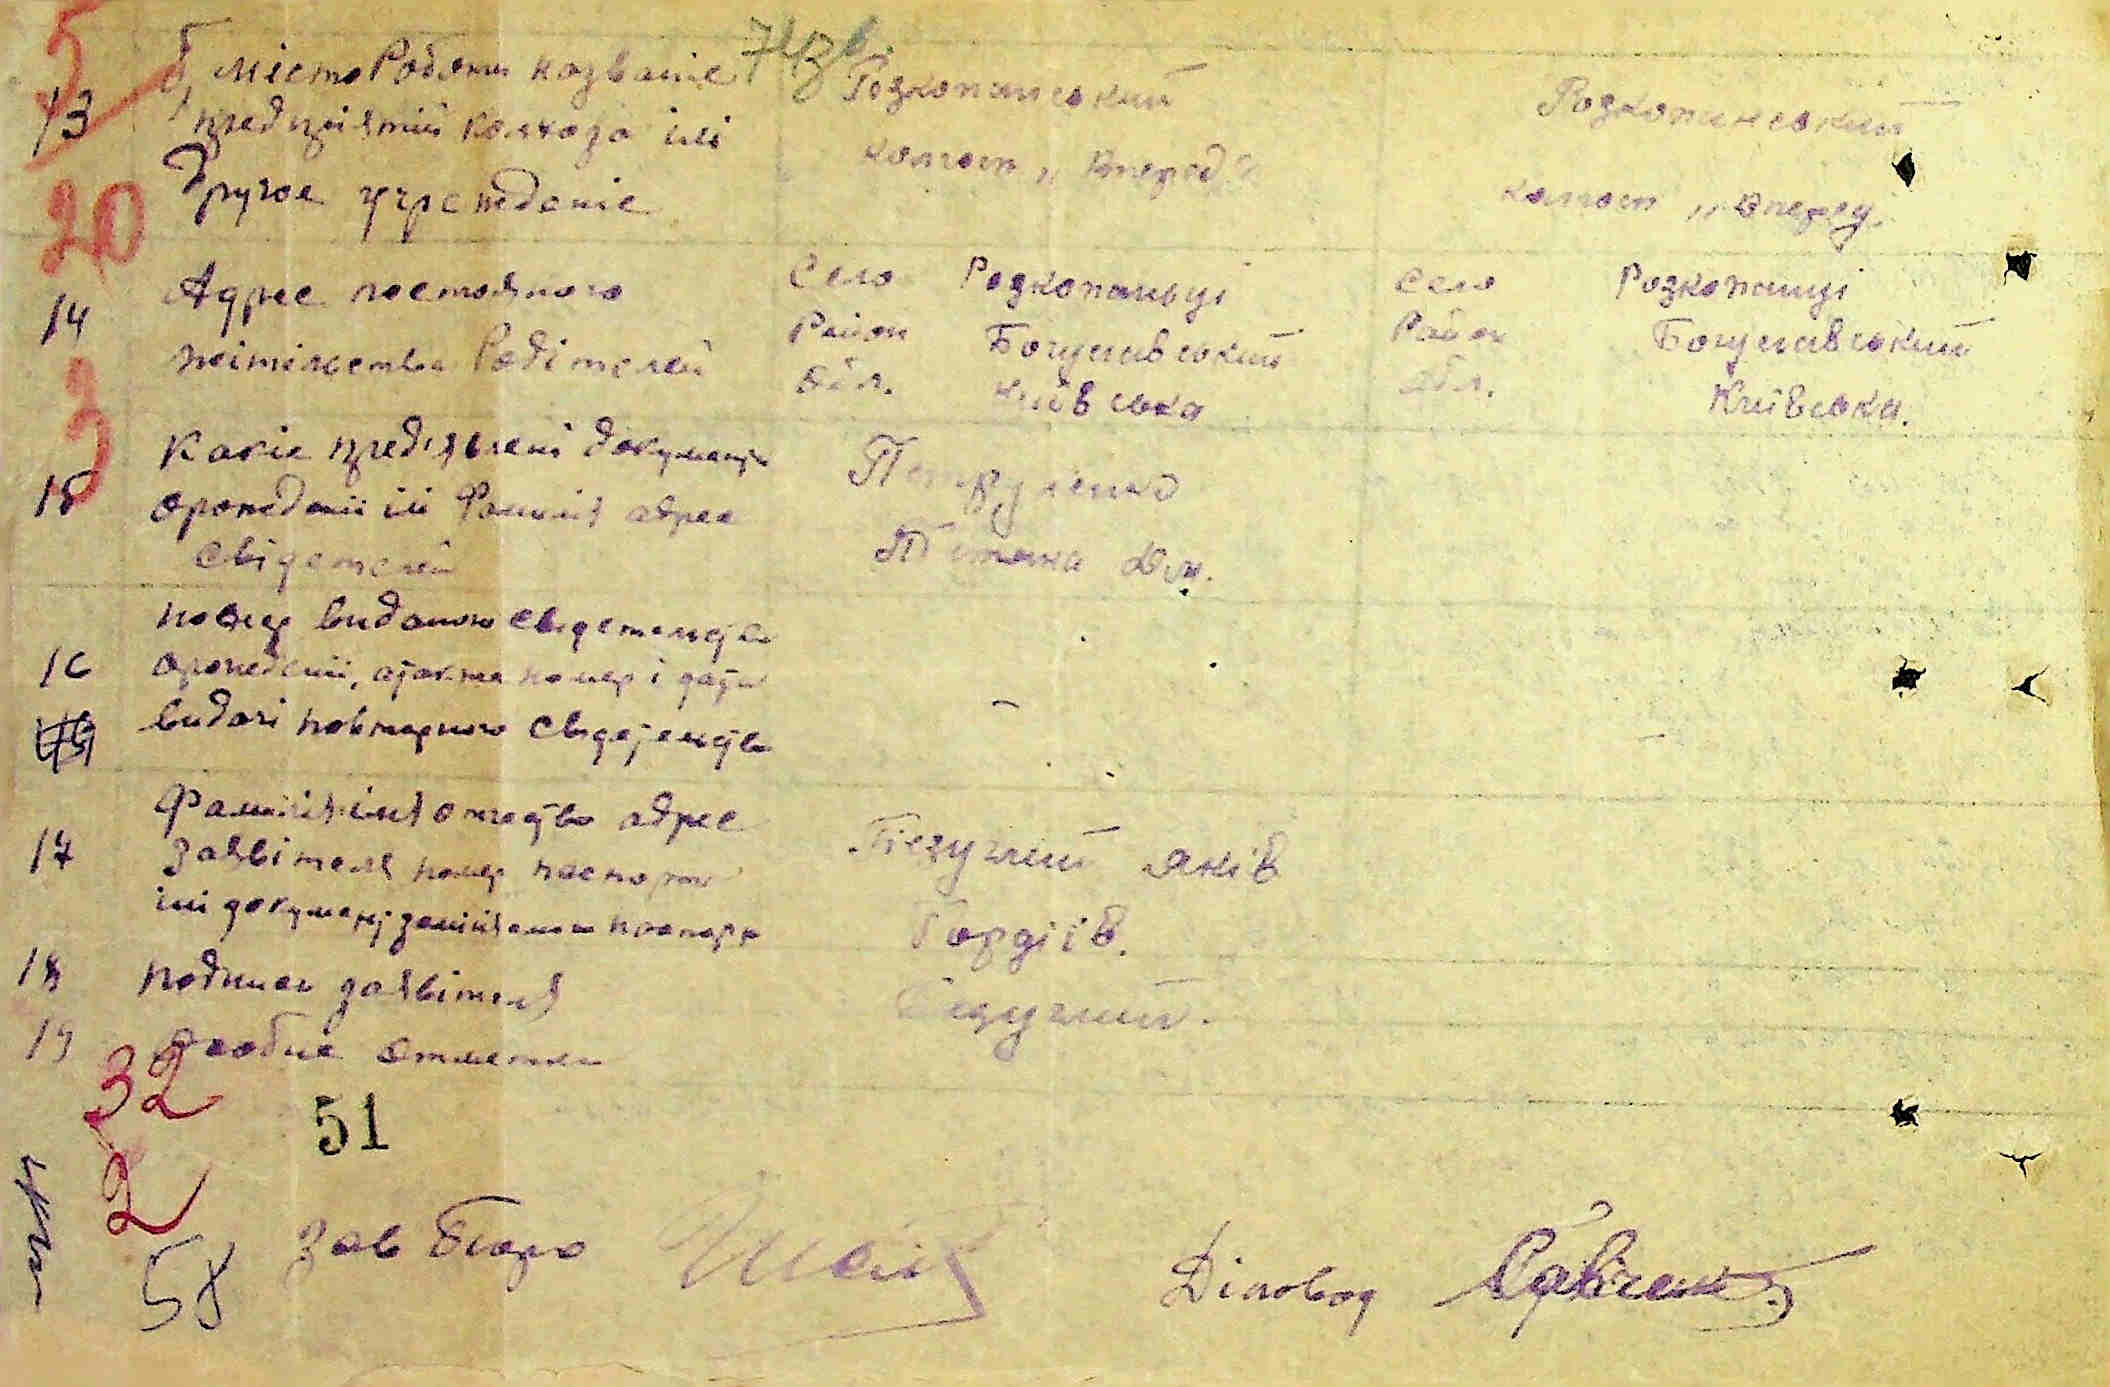 5
13
б, місто Роботи названіе
предпріятій колхоза ілі
Другое учреждение
Розкопинський
колгосп „Вперед"
Розкопинський
колгосп „Вперед.
20
14
Адрес постояного
жітільства Родітелей
Село Розкопаньці
Район Богуславський
Обл. Київська
Село Розкопанці
Район Богуславський
Обл. Київська.
3
15
Какіе предявлені документи
орождениі ілі Фамилія адрес
свідетелей
Тетяна
16
номер виданого свидетельства
орождениі, также номер і дата
видачі повторного свидетельства
–
–
17
Фамилія імя отчество адрес
заявітеля номер паспорта
ілі документ заміняющий паспорт
Яків
Гордіїв.
18
подпись заявітеля
19
особие отметки
32
51
2
58
Зав Бюро
Діловод